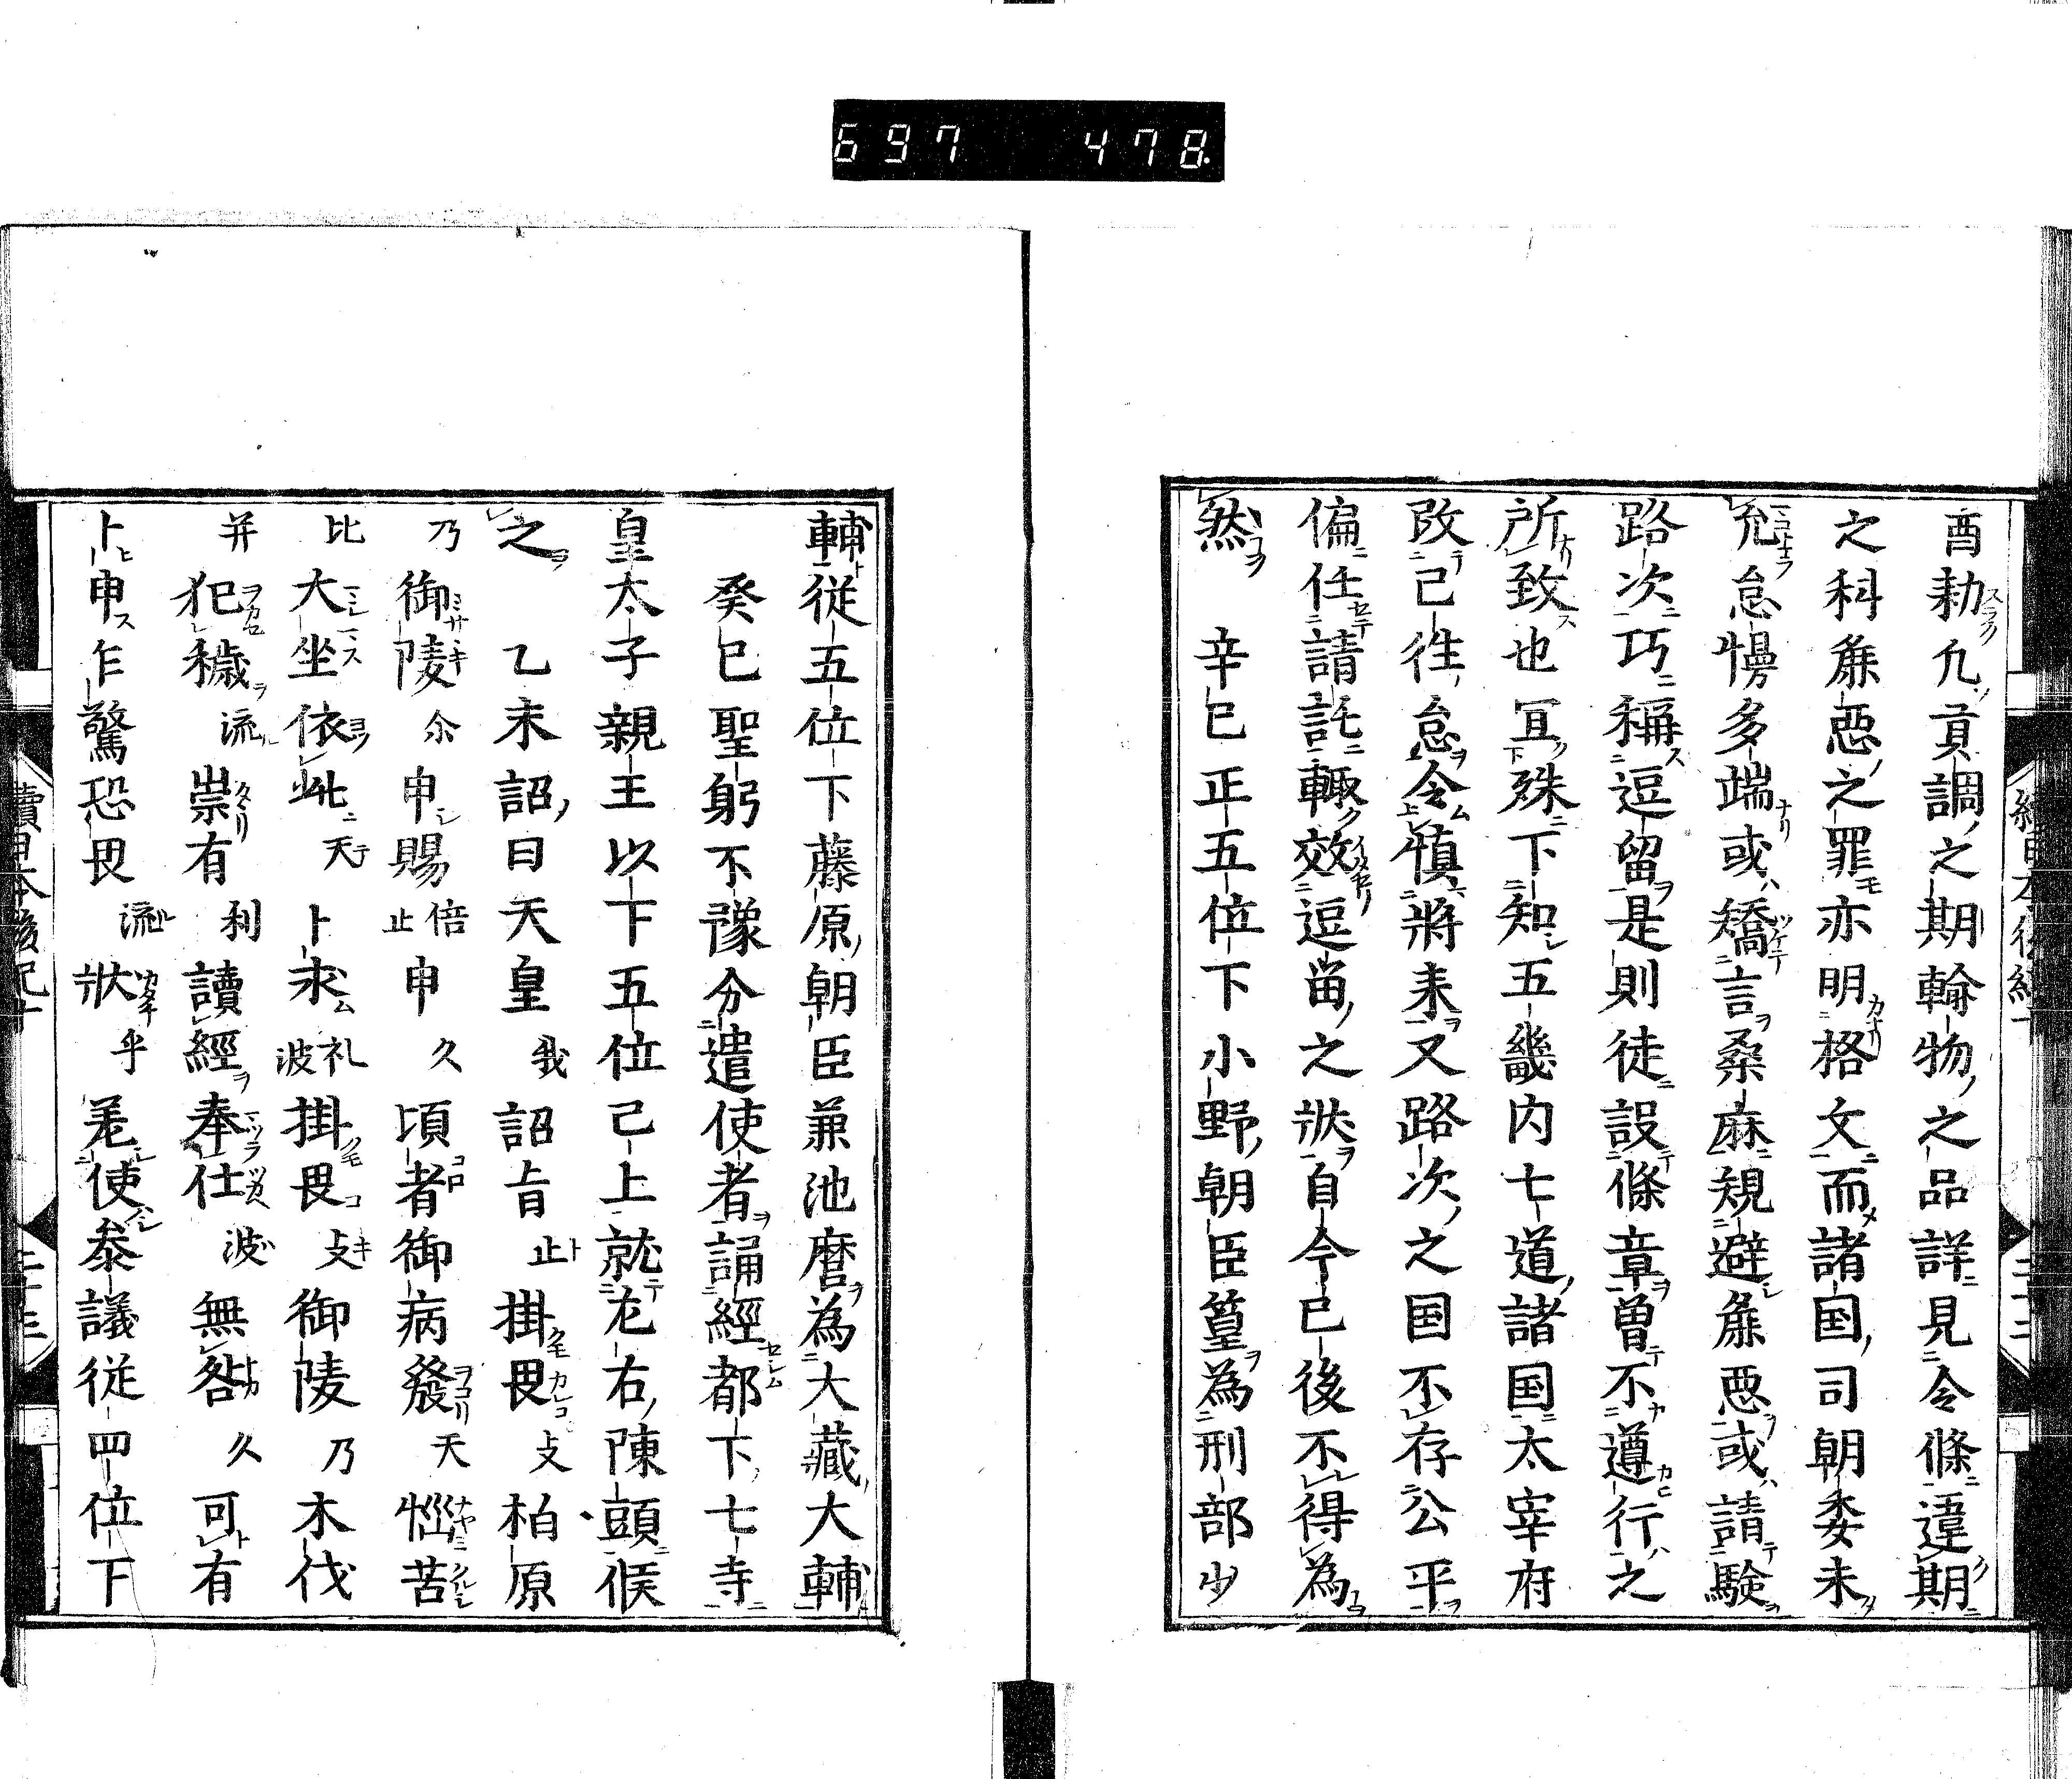 697 478.
酉勑凢貢調之期輸物之品詳見令條違期
之科麁惡之罪亦明格文而諸国司朝委未
允怠慢多端或矯言桑麻規避麁惡或請驗
路次巧稱逗留是則徒設條章曽不遵行之
所致也冝殊下知五畿内七道諸国太宰府
改已徃怠令慎將来又路次之国不存公平
偏任請託輙效逗留之状自今已後不得為
然　辛巳正五位下小野朝臣篁為刑部少
輔従五位下藤原朝臣兼池麿為大藏大輔
癸巳聖躬不豫分遣使者誦經都下七寺
皇太子親王以下五位已上就左右陳頭候
之　乙未詔曰天皇我詔旨止掛畏支柏原
乃御陵尓申賜倍止申久頃者御病發天惱苦
比大坐依此天卜求礼波掛畏支御陵乃木伐
并犯穢流祟有利讀經奉仕波無咎久可有
卜申乍驚恐畏流状乎差使叅議従四位下